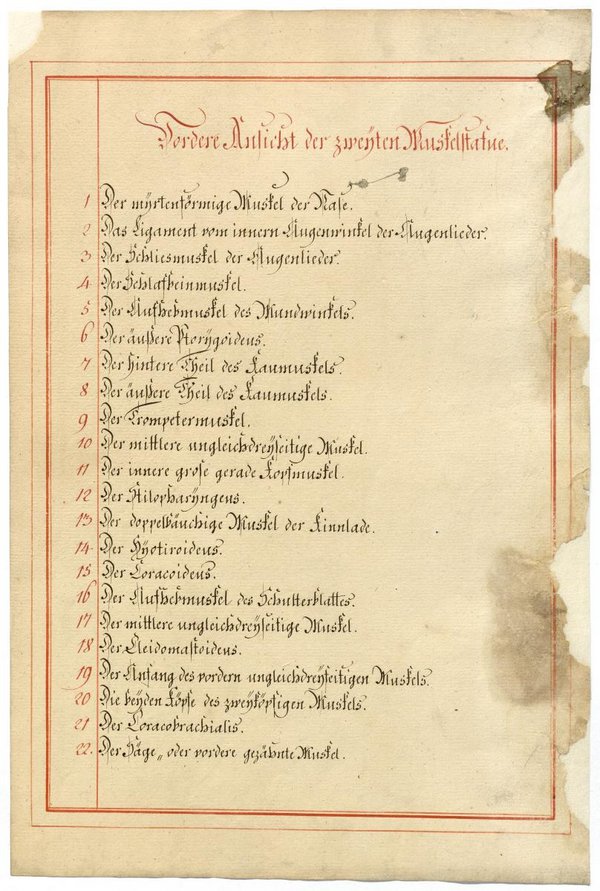 Vordere Ansicht der zweyten Muskelstatue.
1 Der myrtenförmige Muskel der Nase.
2 Das Ligament vom innern Augenwinkel der Augenlieder.
3 Der Schliesmuskel der Augenlieder.
4. Der Schlafbeinmuskel.
5 Der Aufhebmuskel des Mundwinkels.
6 Der äußere Pterygoideus.
7 Der hintere Theil des Kaumuskels.
8 Der äußere Theil des Kaumuskels.
9 Der Trompetermuskel.
10 Der mittlere ungleichdreyseitige Muskel.
11 Der innere grose gerade Kopfmuskel.
12 Der Stilopharyngeus.
13 Der doppelbäuchige Muskel der Kinnlade.
14 Der Hyotiroideus.
15 Der Coracoideus.
16 Der Aufhebmuskel des Schulterblattes.
17 Der mittlere ungleichdreyseitige Muskel.
18 Der Cleidomastoideus.
19 Der Anfang des vordern ungleichdreyseitigen Muskels.
20 Die beyden Köpfe des zweyköpfigen Muskels.
21 Der Coracobrachialis.
22. Der Säge„ oder vordere gezähnte Muskel.